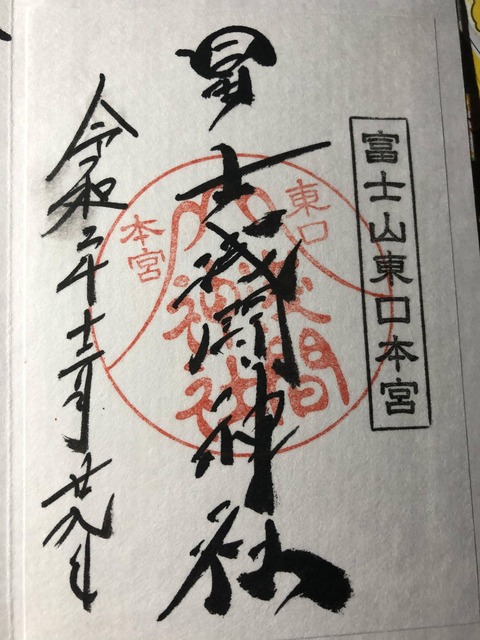 富士山東口本宮
冨士浅間神社
東口
本宮
浅間
神社
令和二年十二月廿九日